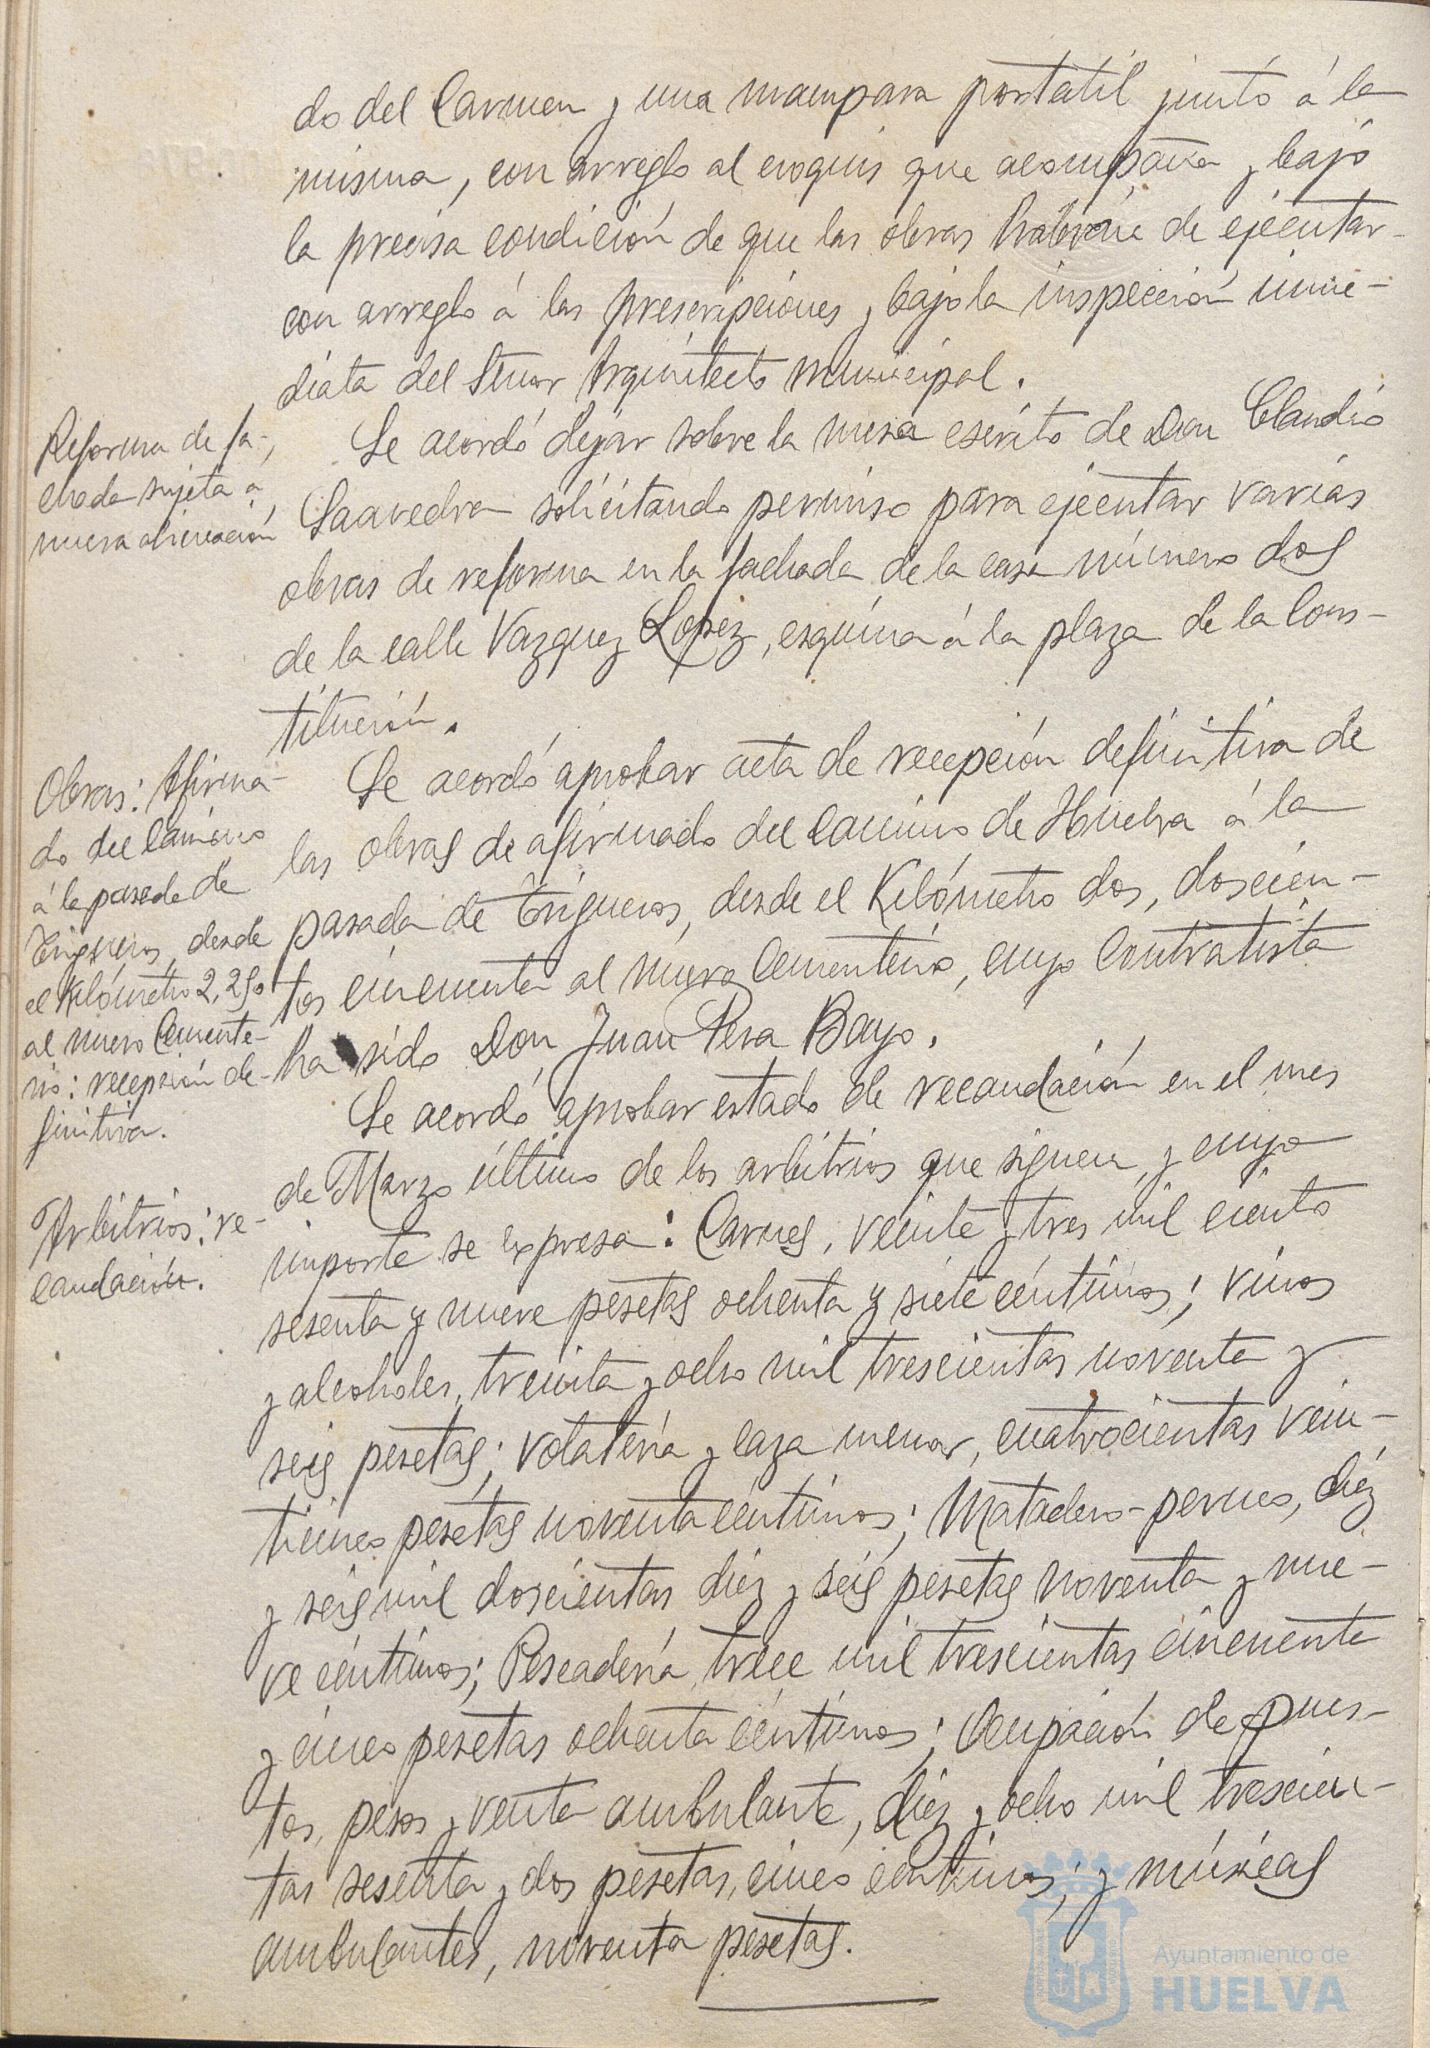 do del Carmen y una mampara portatil junto á la
misma, con arreglo al croquis que acompaña y bajo
la precisa condición de que las obras habrán de ejecutar-
con arreglo á las prescripciones y bajo la inspección inme-
diata del Señor Arquitecto municipal.
Reforma de fa-
chada sujeta a
nueva alineación
Se acordó dejar sobre la mesa escrito de Don Claudio
Saavedra solicitando permiso para ejecutar varias
obras de reforma en la fachada de la casa número dos
de la calle Vazquez Lopez, esquina á la plaza de la Cons-
titución.
Obras: Afirma-
do del camino
á la pasada de
Trigueros, desde
el Kilómetro 2,250
al nuevo Cemente-
rio: recepción de-
finitiva.
Se acordó aprobar acta de recepción definitiva de
las obras de afirmado del camino de Huelva á la
pasada de Trigueros, desde el Kilómetro dos, doscien-
tos cincuenta al nuevo Cementerio, cuyo contratista
ha sido Don Juan Pera Bayo.
Arbitrios: re-
caudación.
Se acordó aprobar estado de recaudación en el mes
de Marzo último de los arbitrios que siguen y cuyo
importe se expresa: Carnes, veinte y tres mil ciento
sesenta y nueve pesetas ochenta y siete céntimos; vinos
y alcoholes, treinta y ocho mil trescientas noventa y
seis pesetas; volatería y caza menor, cuatrocientas vein-
ticinco pesetas noventa céntimos; Matadero-perneo, diéz
y seis mil doscientas diez y seis pesetas noventa y nue-
ve céntimos; Pescadería, trece mil trescientas cincuenta
y cinco pesetas ochenta céntimos; Ocupación de pues-
tos, pesos y venta ambulante, diez y ocho mil trescien-
tas sesenta y dos pesetas, cinco céntimos; y músicas
ambulantes, noventa pesetas.
Ayuntamiento de
HUELVA